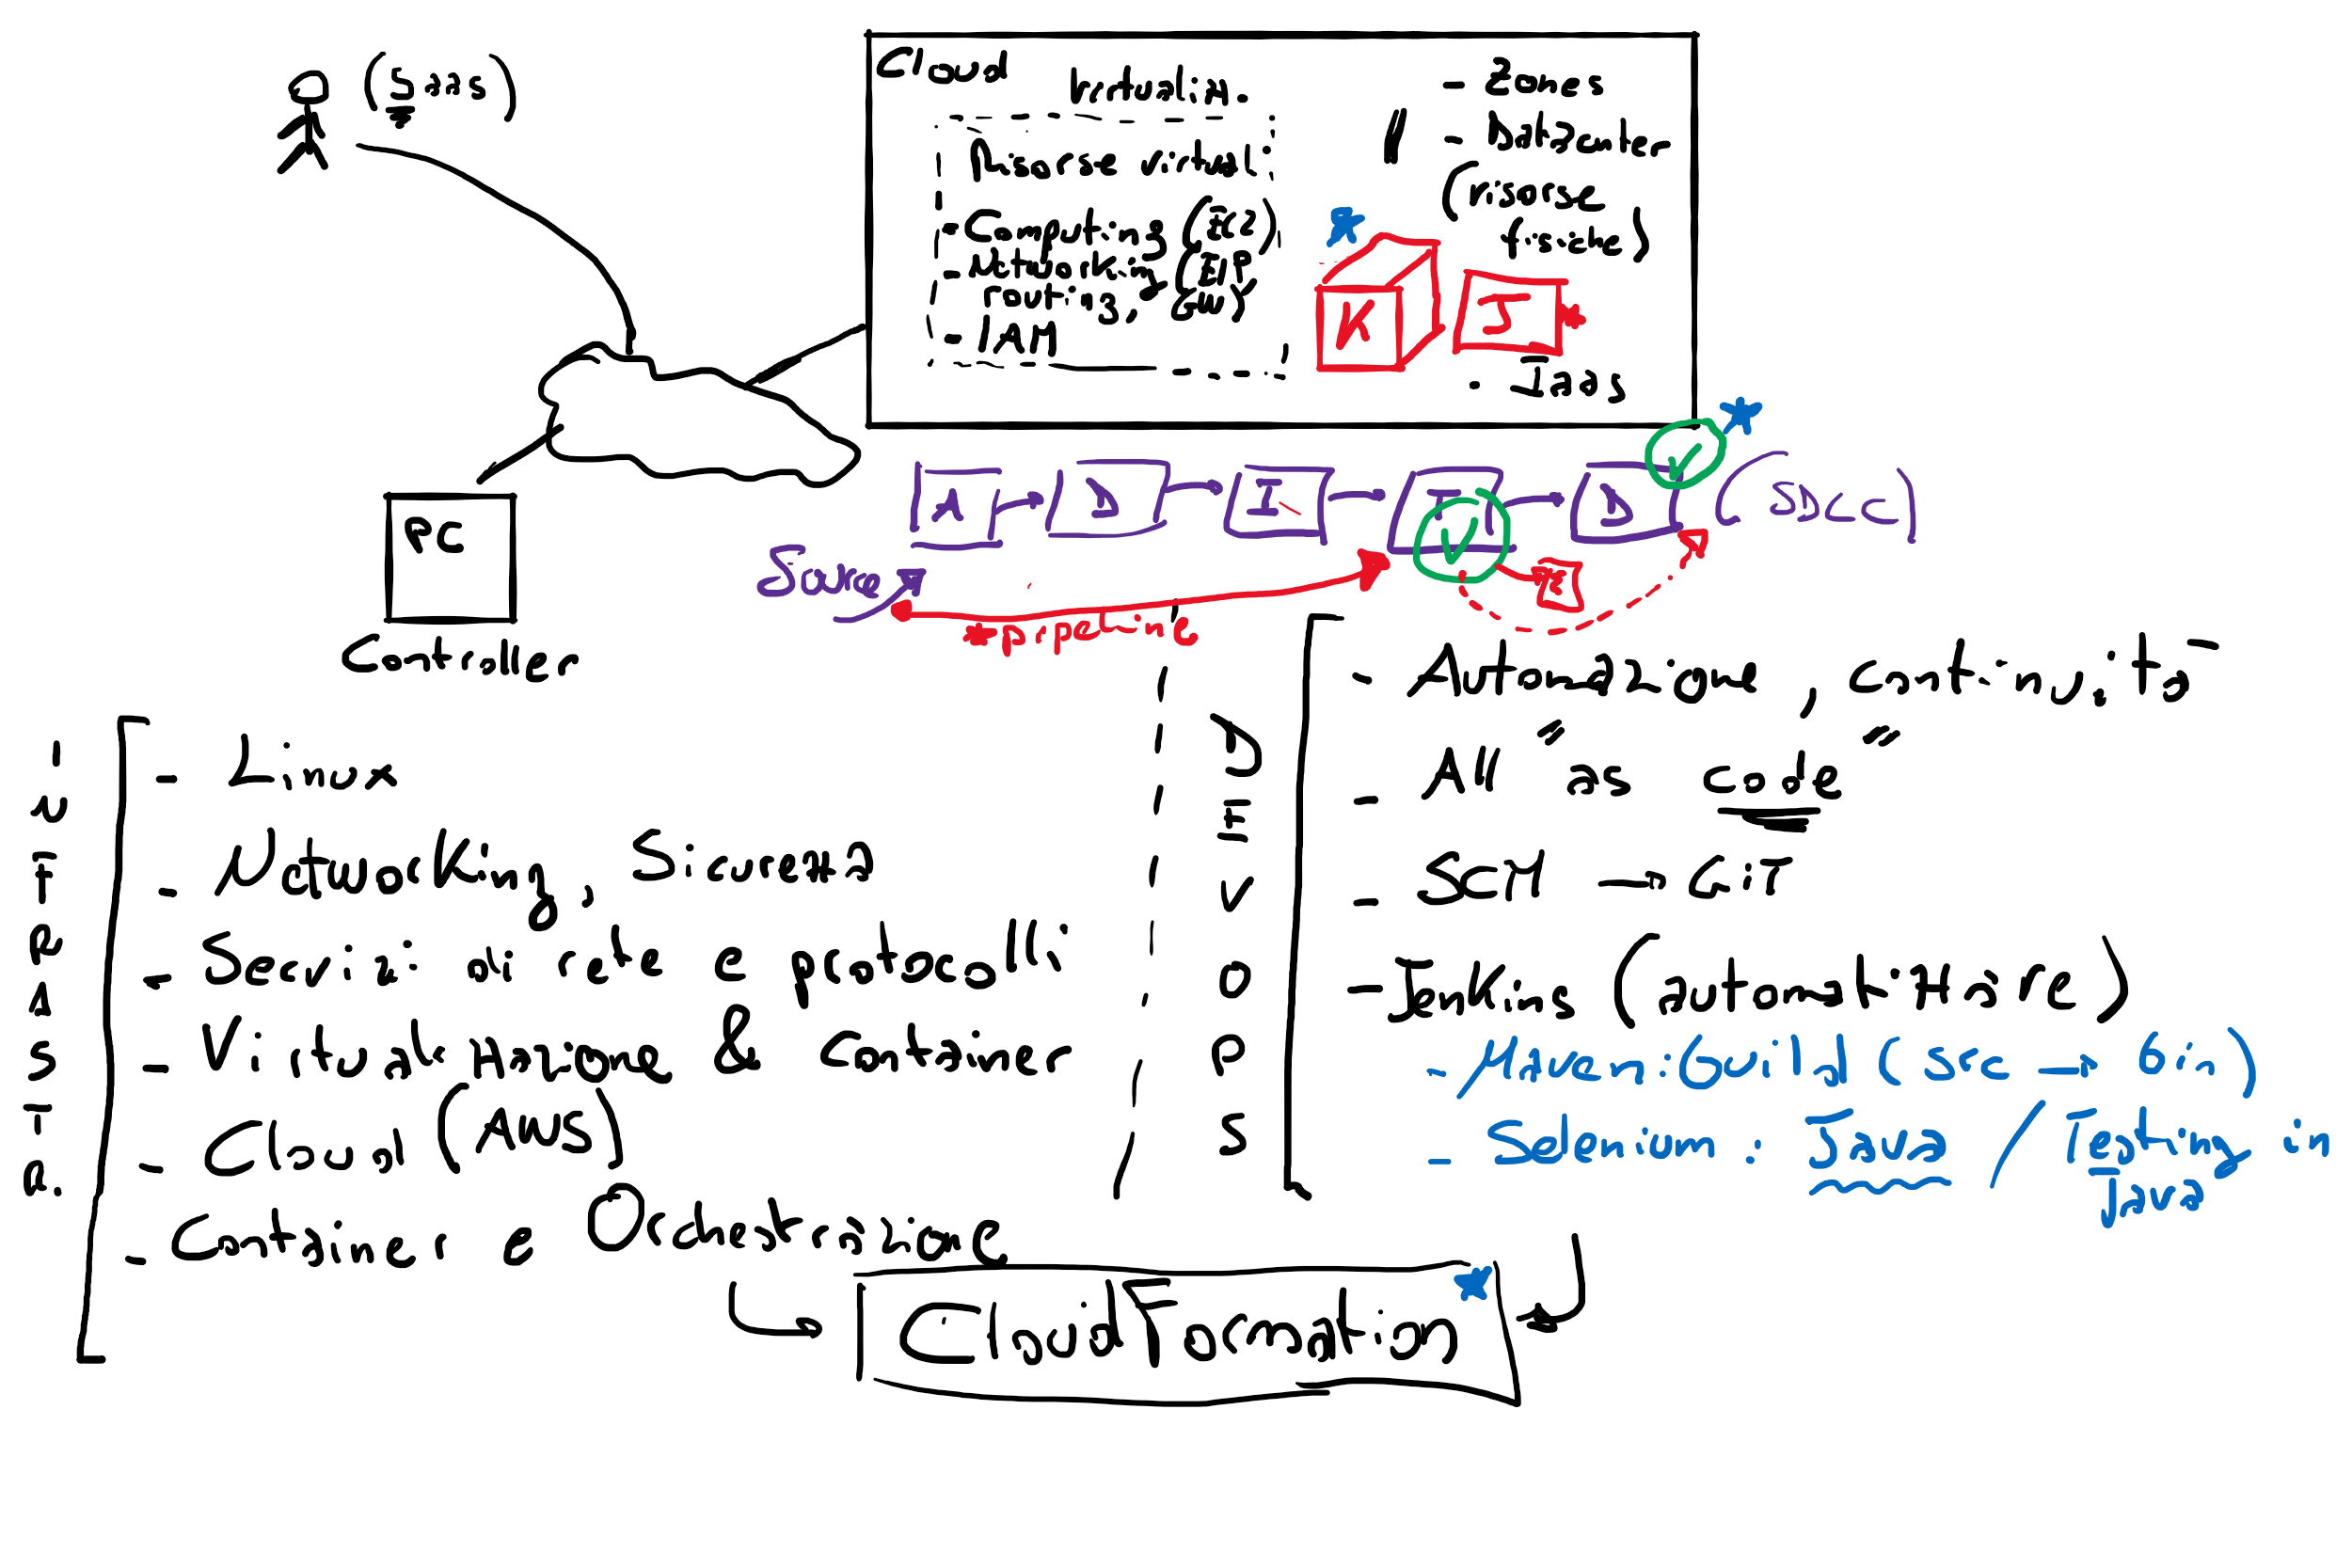 (SaaS)
Cloud
Virtualiz.
Risorse virtual:
- Computing (EC2)
- Networking (EIP
routing, GWY)
- IAM
- Zones
- Datacenter
(risorse
fisiche)
K
J
- IaaS
PC
Controller
A
D
I
T
D
(SDLC)
Source
*pipeline
INFRASTR.
- Linux
- Networking, Sicurezza
- Servizi di rete e protocolli
- Virtualizzazione & Container
- Cloud (AWS)
- Container e Orchestrazione
DEVOPS
- Automazione, continuità
- All "as code"
- SCM → GiT
- Jenkins (automatizzare)
- Maven: build (src → bin)
- Selenium: Java / Testing in
Java
CloudFormation